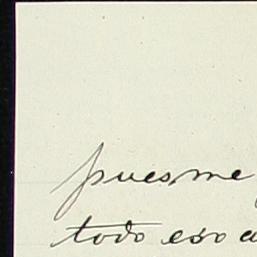 pues me
todo eso a